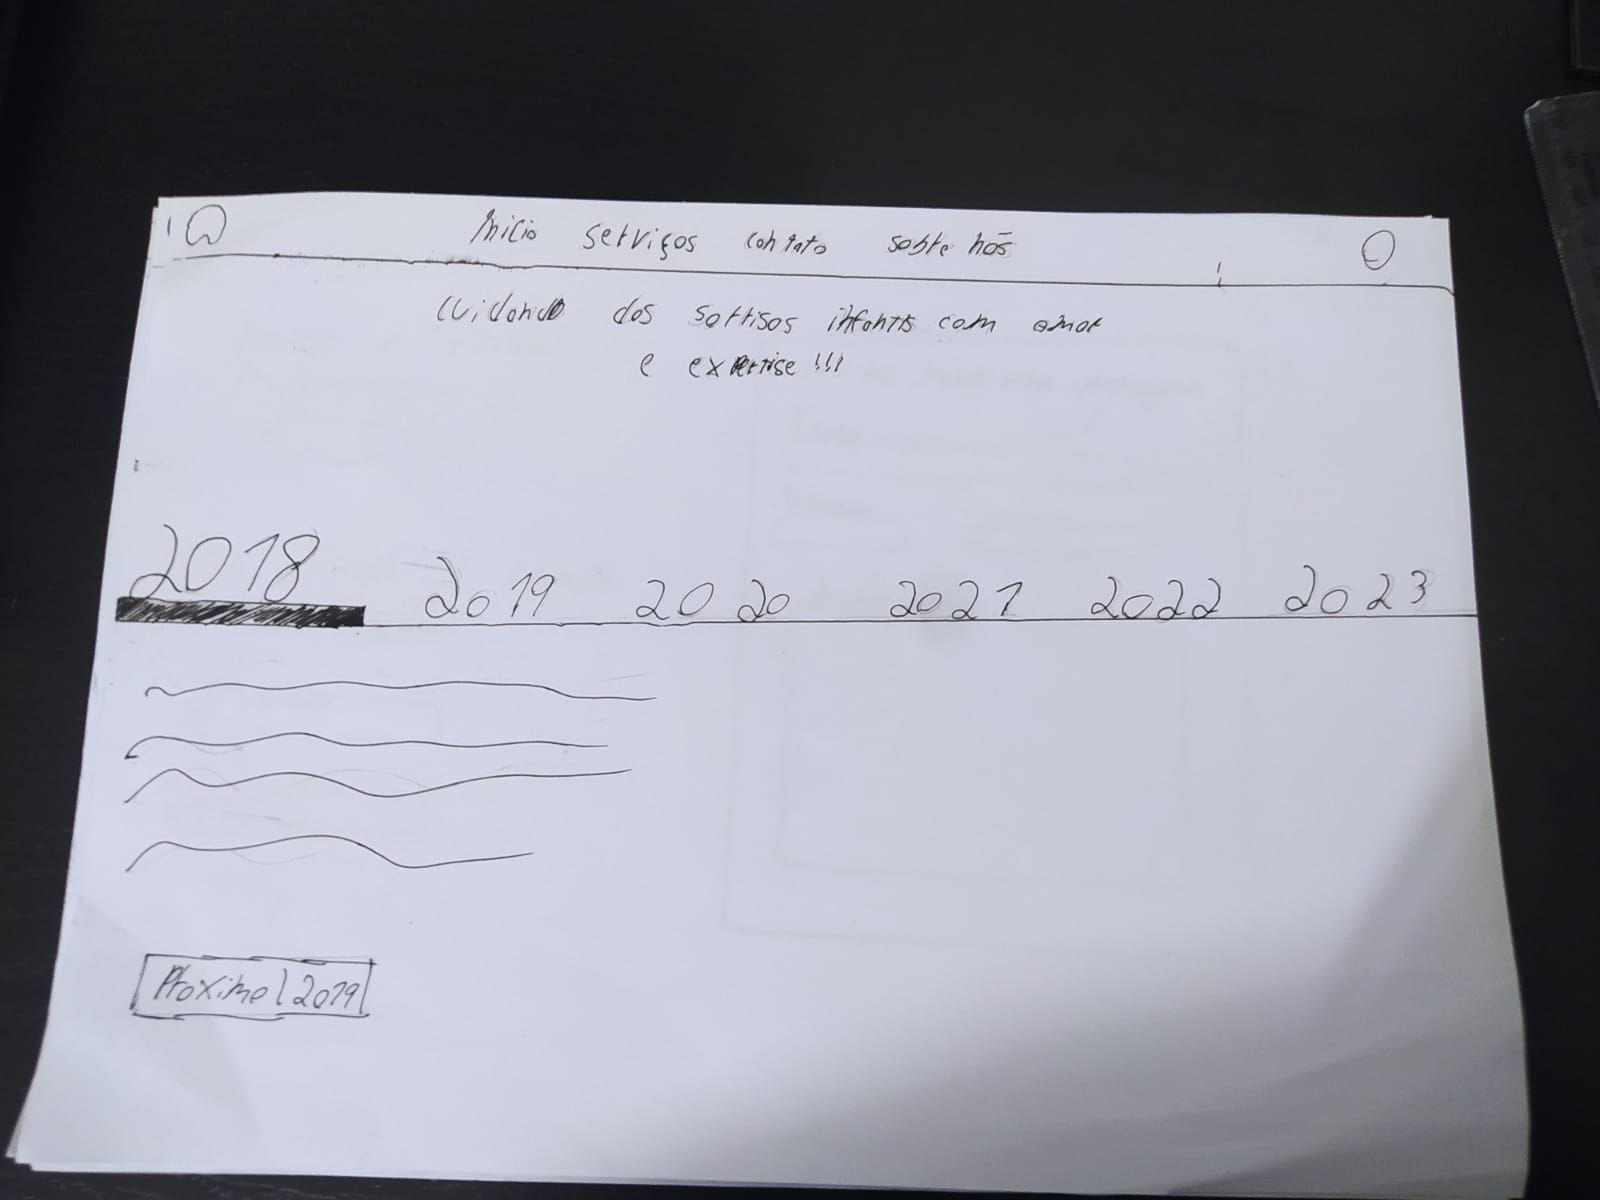 Início serviços contato sobre nós
cuidando dos sorrisos infantis com amor
e expertise !!!
2018 2019 2020 2021 2022 2023
Proximo | 2019